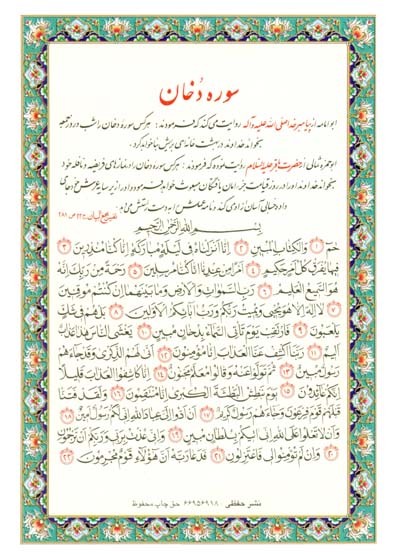 سوره دُخان
ابو امامه از پیامبر خدا صلی الله علیه واله روایت می کند که فرمودند : هر کس سوره دخان را شب و روز جمعه
بخواند خداوند در بهشت خانه ای برایش بنا خواهد کرد.
ابوحمزه ثمالی از حضرت باقر علیه السلام روایت نموده که فرمودند : هر کس سوره دخان را در نمازهای فریضه و نافله خود
بخواند خداوند او را در روز قیامت در امان یافتگان مبعوث خواهد فرمود و او را زیر سایه عرش خود جای
داده و حسابی آسان از او می کند و نامه عملش را به دست راستش می دهد.
تفسیر مجمع البیان
بِسْمِ اللَّهِ الرَّحْمَنِ الرَّحِيمِ
حم ﴿۱﴾ وَالْكِتَابِ الْمُبِينِ ﴿۲﴾ إِنَّا أَنْزَلْنَاهُ فِي لَيْلَةٍ مُبَارَكَةٍ إِنَّا كُنَّا مُنْذِرِينَ ﴿۳﴾
فِيهَا يُفْرَقُ كُلُّ أَمْرٍ حَكِيمٍ ﴿۴﴾ أَمْرًا مِنْ عِنْدِنَا إِنَّا كُنَّا مُرْسِلِينَ ﴿۵﴾ رَحْمَةً مِنْ رَبِّكَ إِنَّهُ
هُوَ السَّمِيعُ الْعَلِيمُ ﴿۶﴾ رَبِّ السَّمَوَاتِ وَالْأَرْضِ وَمَا بَيْنَهُمَا إِنْ كُنْتُمْ مُوقِنِينَ
﴿۷﴾ لَا إِلَهَ إِلَّا هُوَ يُحْيِي وَيُمِيتُ رَبُّكُمْ وَرَبُّ آبَائِكُمُ الْأَوَّلِينَ ﴿۸﴾ بَلْ هُمْ فِي شَكٍّ
يَلْعَبُونَ ﴿۹﴾ فَارْتَقِبْ يَوْمَ تَأْتِي السَّمَاءُ بِدُخَانٍ مُبِينٍ ﴿۱۰﴾ يَغْشَى النَّاسَ هَذَا عَذَابٌ
أَلِيمٌ ﴿۱۱﴾ رَبَّنَا اكْشِفْ عَنَّا الْعَذَابَ إِنَّا مُؤْمِنُونَ ﴿۱۲﴾ أَنَّى لَهُمُ الذِّكْرَى وَقَدْ جَاءَهُمْ
رَسُولٌ مُبِينٌ ﴿۱۳﴾ ثُمَّ تَوَلَّوْا عَنْهُ وَقَالُوا مُعَلَّمٌ مَجْنُونٌ ﴿۱۴﴾ إِنَّا كَاشِفُو الْعَذَابِ قَلِيلًا
إِنَّكُمْ عَائِدُونَ ﴿۱۵﴾ يَوْمَ نَبْطِشُ الْبَطْشَةَ الْكُبْرَى إِنَّا مُنْتَقِمُونَ ﴿۱۶﴾ وَلَقَدْ فَتَنَّا
قَبْلَهُمْ قَوْمَ فِرْعَوْنَ وَجَاءَهُمْ رَسُولٌ كَرِيمٌ ﴿۱۷﴾ أَنْ أَدُّوا إِلَيَّ عِبَادَ اللَّهِ إِنِّي لَكُمْ رَسُولٌ أَمِينٌ ﴿۱۸﴾
وَأَنْ لَا تَعْلُوا عَلَى اللَّهِ إِنِّي آتِيكُمْ بِسُلْطَانٍ مُبِينٍ ﴿۱۹﴾ وَإِنِّي عُذْتُ بِرَبِّي وَرَبِّكُمْ أَنْ تَرْجُمُونِ
﴿۲۰﴾ وَإِنْ لَمْ تُؤْمِنُوا لِي فَاعْتَزِلُونِ ﴿۲۱﴾ فَدَعَا رَبَّهُ أَنَّ هَؤُلَاءِ قَوْمٌ مُجْرِمُونَ ﴿۲۲﴾
نشر حفظی ۶۶۹۵۶۹۱۸ حق چاپ محفوظ